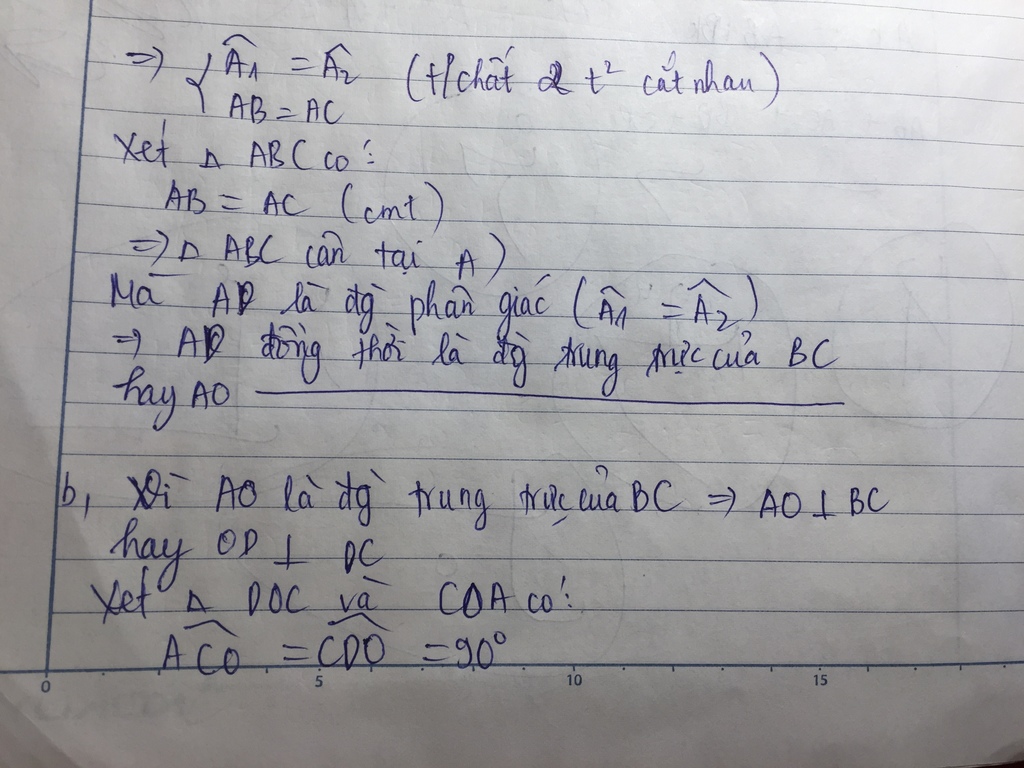 => { Â1 = Â2 (t/chất 2 t² cắt nhau)
AB = AC
Xét Δ ABC có:
AB = AC (cmt)
=> Δ ABC cân tại A)
Mà AD là đg` phân giác (Â1 = Â2)
=> AD đồng thời là đg` trung trực của BC
hay AO ————————
b, Vì AO là đg` trung trực của BC => AO ⊥ BC
hay OD ⊥ DC
Xét Δ DOC và COA có:
ACO = CDO = 90°
0 5 10 15